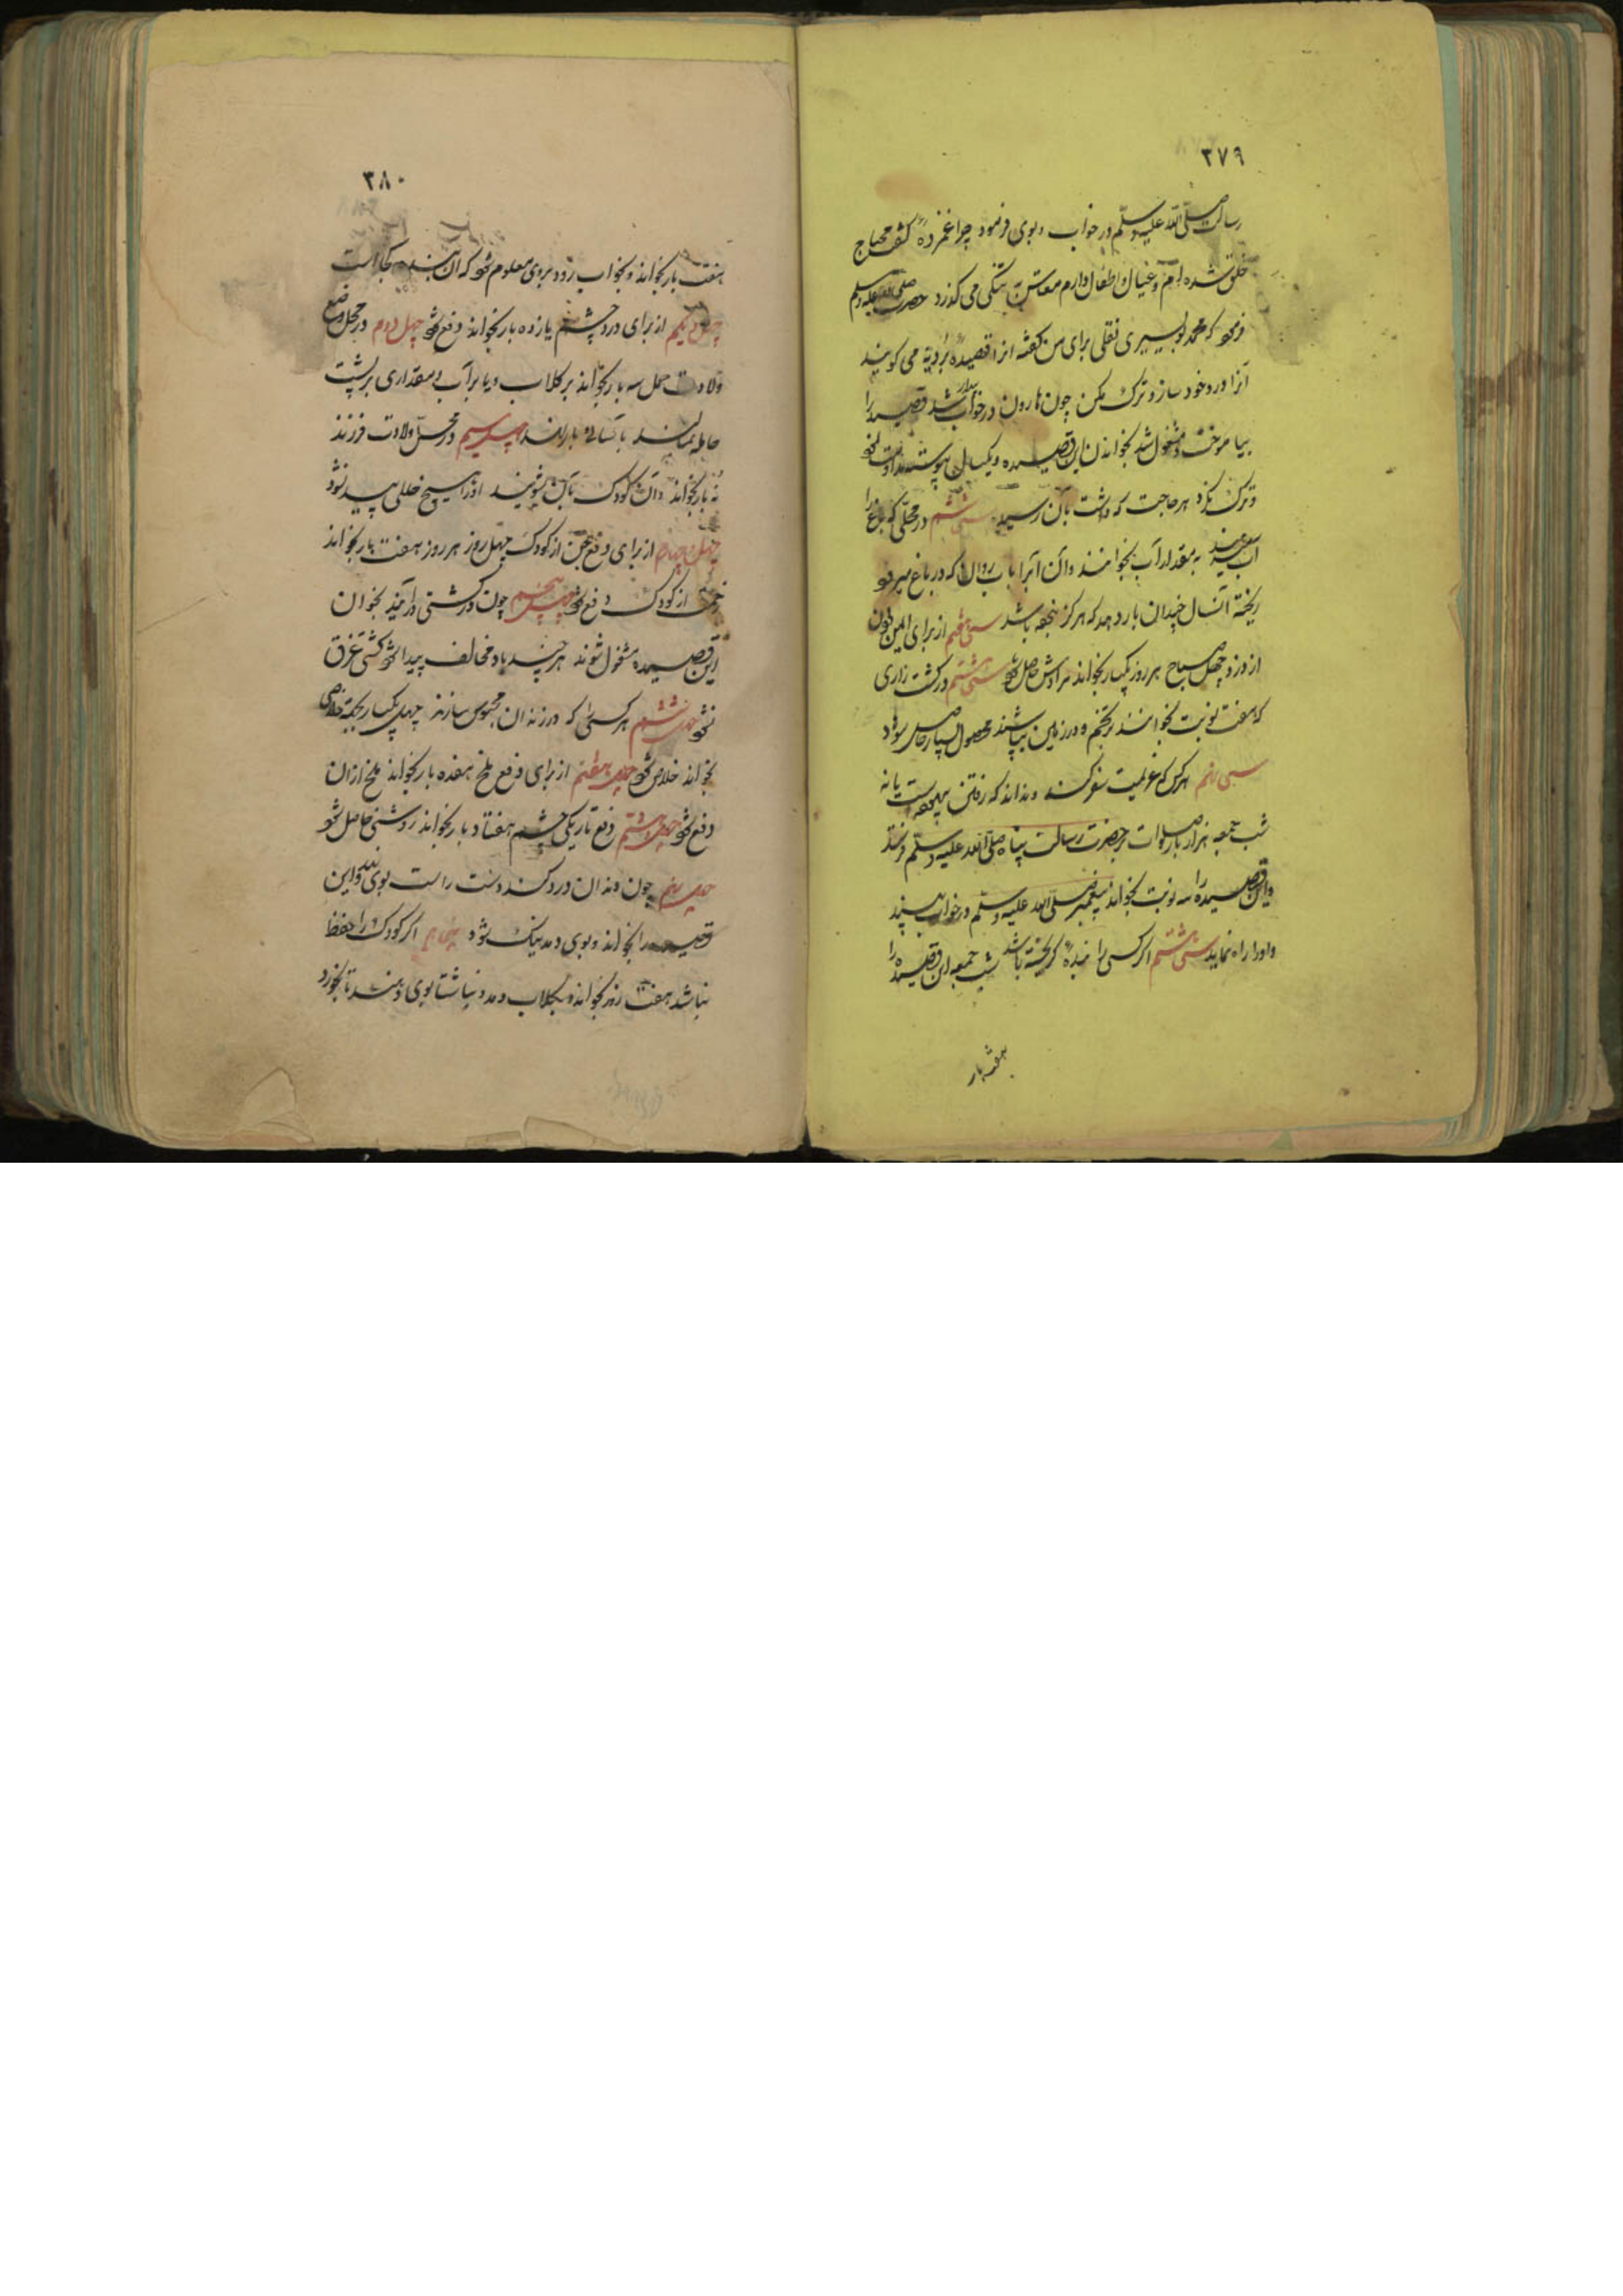 ٣٧٩
رسالت صلّی الله علیه وسلّم در خواب دید وی فرمود چرا غمزدهٔ گفت محتاج
خلق شده ام و عیال و اطفال دارم معاش من بتنگی می گذرد حضرت صلی الله علیه وسلم
فرمود که محمد بوسیری نقلی برای من گفته انرا قصیدهٔ بُردیّه می گویند
آنرا ورد خود ساز و ترک مکن چون هارون در خواب بیدار شد قصیده را
بیاموخت و مشغول شد بخواندن این قصیده و یکسال پیوسته مداومت نمود
و ترک نکرد هر حاجت که داشت بآن رسید سی ششم در محلّی که باغ را
آب میدهند به مقدار آب بخوانند و آن آبرا باب روان که در باغ میرود
ریخته آنسال چندان بار دهد که هرگز نبوده باشد سی هفتم از برای ایمن بودن
از دزد چهل صباح هر روز یکبار بخواند مرادش حاصل شود سی هشتم در کشت زاری
که هفت نوبت بخوانند بر تخم و در زمین بپاشند محصول بسیار حاصل شود
سی نهم هر کس که عزیمت سفر کند و نداند که رفتن بهتر است یا نه
شب جمعه هزار بار صلوات بر حضرت رسالت پناه صلّی الله علیه وسلّم فرستد
و این قصیده را سه نوبت بخواند پیغمبر صلی الله علیه وسلّم در خواب بیند
و او را راه نماید اگر کسی را بندهٔ گریخته باشد شب جمعه این قصیده را
هفت بار
٣٨٠
هفت بار بخواند و بخواب رود بروی معلوم شود که آن بنده کجا است
چهل و یکم از برای درد چشم یازده بار بخواند دفع شود چهل دوم در محل وضع
ولادت حمل سه بار بخواند بر گلاب و یا بر آب و مقداری بر پشت
حامله بمالند باسانی بار نهد چهل سیم در محل ولادت فرزند
نه بار بخواند و آن کودک بآن بشویند او را هیچ خللی پیدا نشود
چهل چهارم از برای دفع جن از کودک چهل روز هر روز هفت بار بخواند
زحمت از کودک دفع شود چهل پنجم چون در کشتی در آمدند بخواندن
این قصیده مشغول شوند هر چند باد مخالف پیدا شود کشتی غرق
نشود چهل ششم هر کسی را که در زندان محبوس سازند چهل یکبار بجهة خلاصی
بخواند خلاص شود چهل هفتم از برای دفع ملخ هفده بار بخواند ملخ از آن
دفع شود چهل هشتم دفع تاریکی چشم هفتاد بار بخواند روشنی حاصل شود
چهل نهم چون دندان درد کند دست راست بوی نهد و این
قصیده را بخواند و بوی دمد نیک شود پنجاهم اگر کودک را حفظ
نباشد هفت روز بخواند و بگلاب دمد و ناشتا بوی دهند تا بخورد